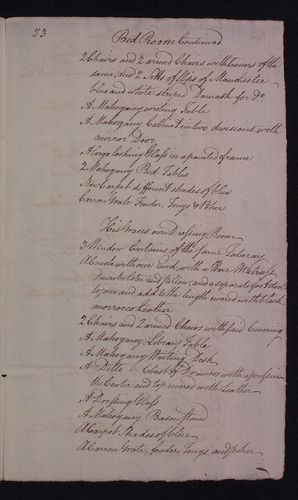 23
Bed Room Continued
2 Chairs and 2 armed Chairs with Covers of the
same, and 2 Setts of slips of Manchester
blue and white striped Damask for Do.
A Mahogany writing Table
A Mahogany Cabinet in two divisions with
mirror Door
A large looking Glass in a painted frame
2 Mahogany Bed Tables
New Carpet different shades of blue
Carron Grate Fender, Tongs & Poker
His Graces own Dressing Room
3 Window Curtains of the same
A Couch without End, with a Hair Mattrass
Down bolster and pillow, and a separate foot stool
to join and add to the length covered with black
morrocco Leather
2 Chairs and 2 armed Chairs with said Covering
A Mahogany Library Table
A Mahogany Writing Desk
A Ditto Chest of Drawers with a press in
the Center and top covered with Leather
A Dressing Glass
A Mahogany Bason Stand
A Carpet Shades of blue
A Carron Grate, fender, Tongs and poker